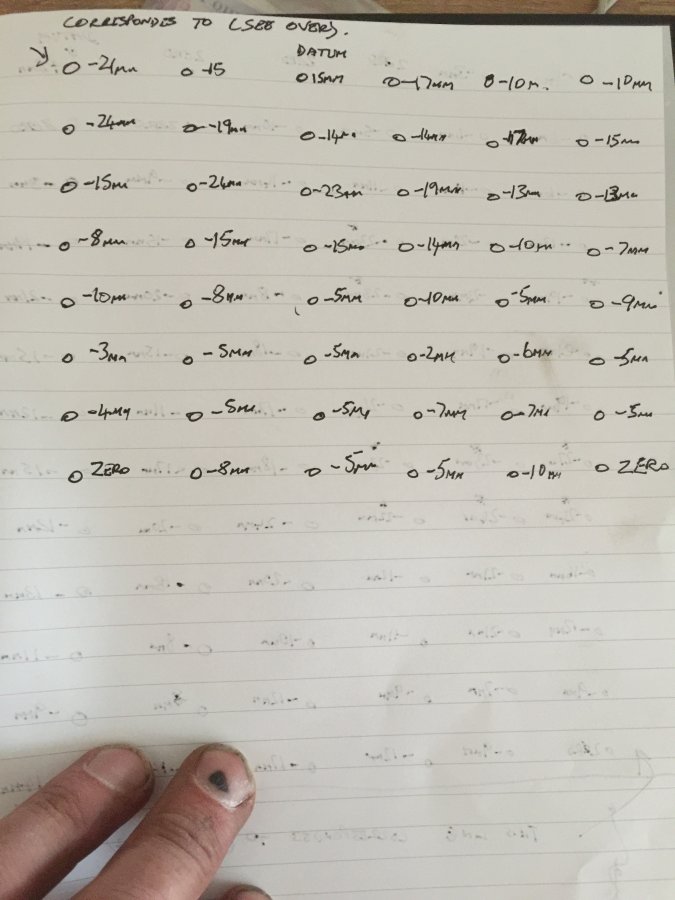 CORRESPONDES TO (SEE OVER).
DATUM
o -21mm o -15 o 15mm o -17mm o -10m. o -10mm
o -24mm o -19mm o -14m o -14mm o o -15mm
o -15mm o -24mm o -23mm o -19mm o -13mm o -13mm
o -8mm o -15mm o -15mm o -14mm o -10m o -7mm
o -10mm o -8mm o -5mm o -10mm o -5mm o -9mm
o -3mm o -5mm o -5mm o -2mm o -6mm o -5mm
o -4mm o -5mm o -5mm o -7mm o -7mm o -5mm
o ZERO o -8mm o -5mm o -5mm o -10mm o ZERO